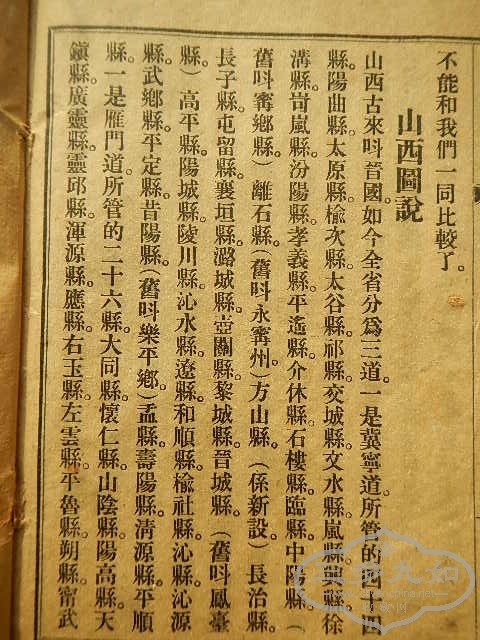 不能和我們一同比較了。
山西圖說
山西古來呌晉國。如今全省分爲三道。一是冀寧道。所管的四四
縣。陽曲縣。太原縣。榆次縣。太谷縣。祁縣。交城縣。文水縣。嵐縣。徐
溝縣。岢嵐縣。汾陽縣。孝義縣。平遙縣。介休縣。石樓縣。臨縣。中陽縣。(
舊呌寗鄉縣)離石縣。(舊呌永寗州)方山縣。(係新設)長治縣。
長子縣。屯留縣。襄垣縣。潞城縣。壺關縣。黎城縣。晉城縣。(舊呌鳳臺
縣)高平縣。陽城縣。陵川縣。沁水縣。遼縣。和順縣。榆社縣。沁縣。沁源
縣。武鄉縣。平定縣。昔陽縣。(舊呌樂平鄉)盂縣。壽陽縣。清源縣。平順
縣。一是雁門道。所管的二十六縣。大同縣。懷仁縣。山陰縣。陽高縣。天
鎮縣。廣靈縣。靈邱縣。渾源縣。應縣。右玉縣。左雲縣。平魯縣。朔縣。甯武